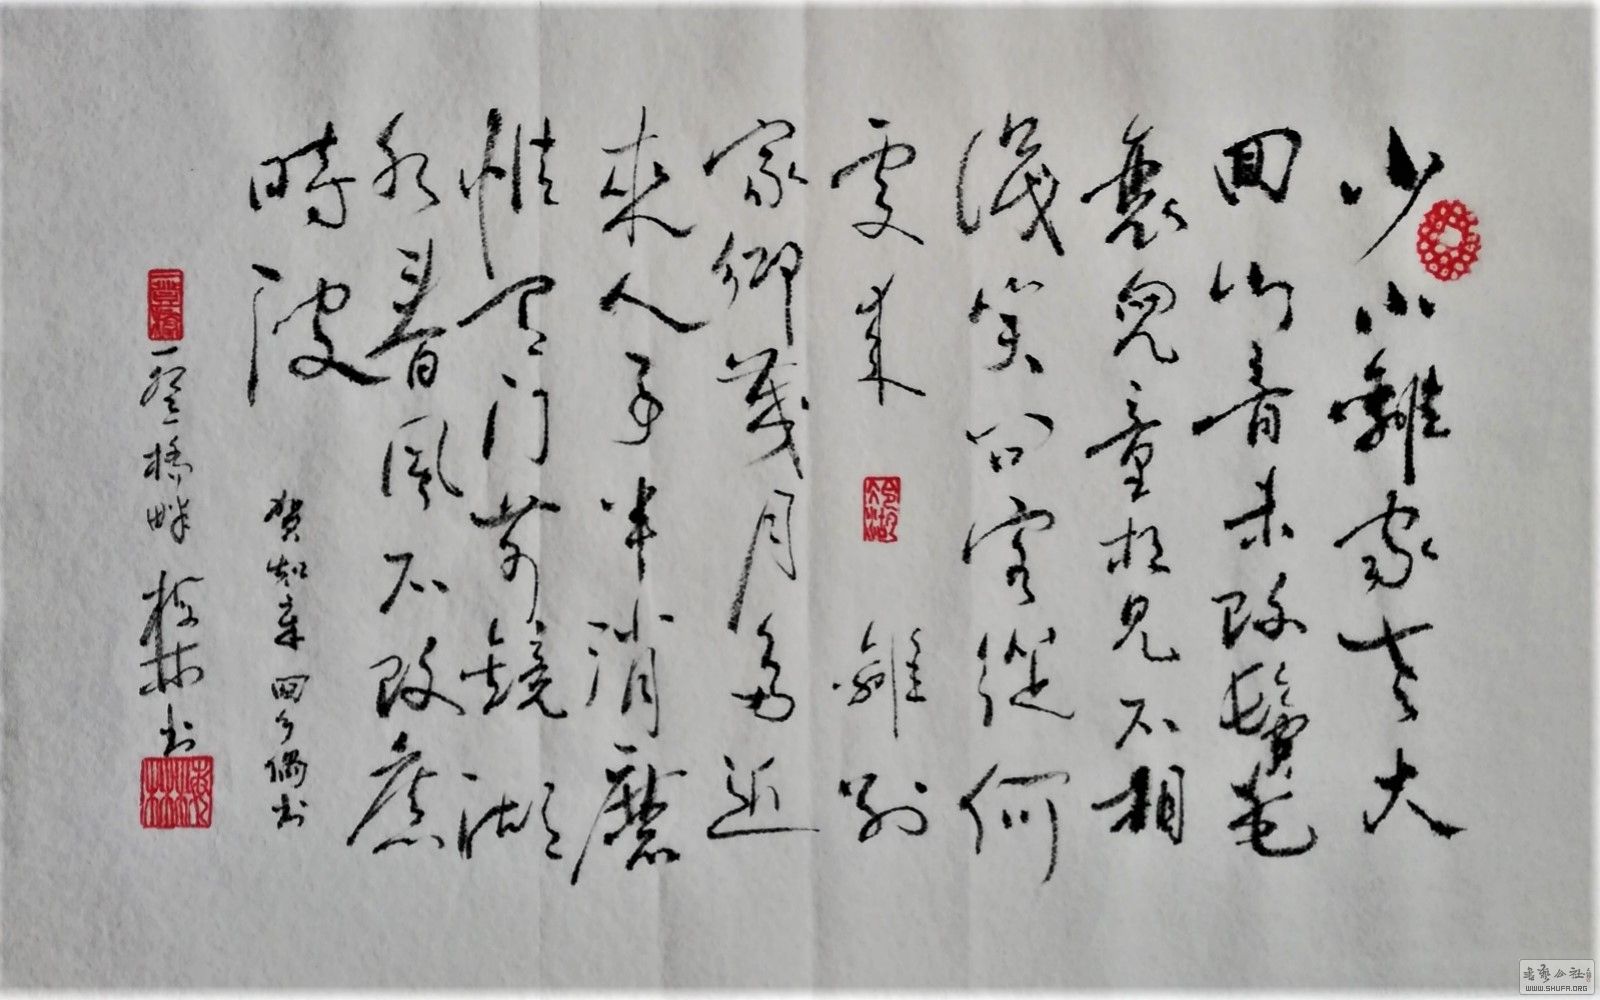 少小離家老大
回乡音未改鬢毛
衰兒童相見不相
識笑问客從何
處来 離别
家鄉歲月多近
來人事半消磨
惟有门前鏡湖
水春風不改舊
時波
贺知章回乡偶书
橋畔 林书
書藝公社
WWW.SHUFA.ORG